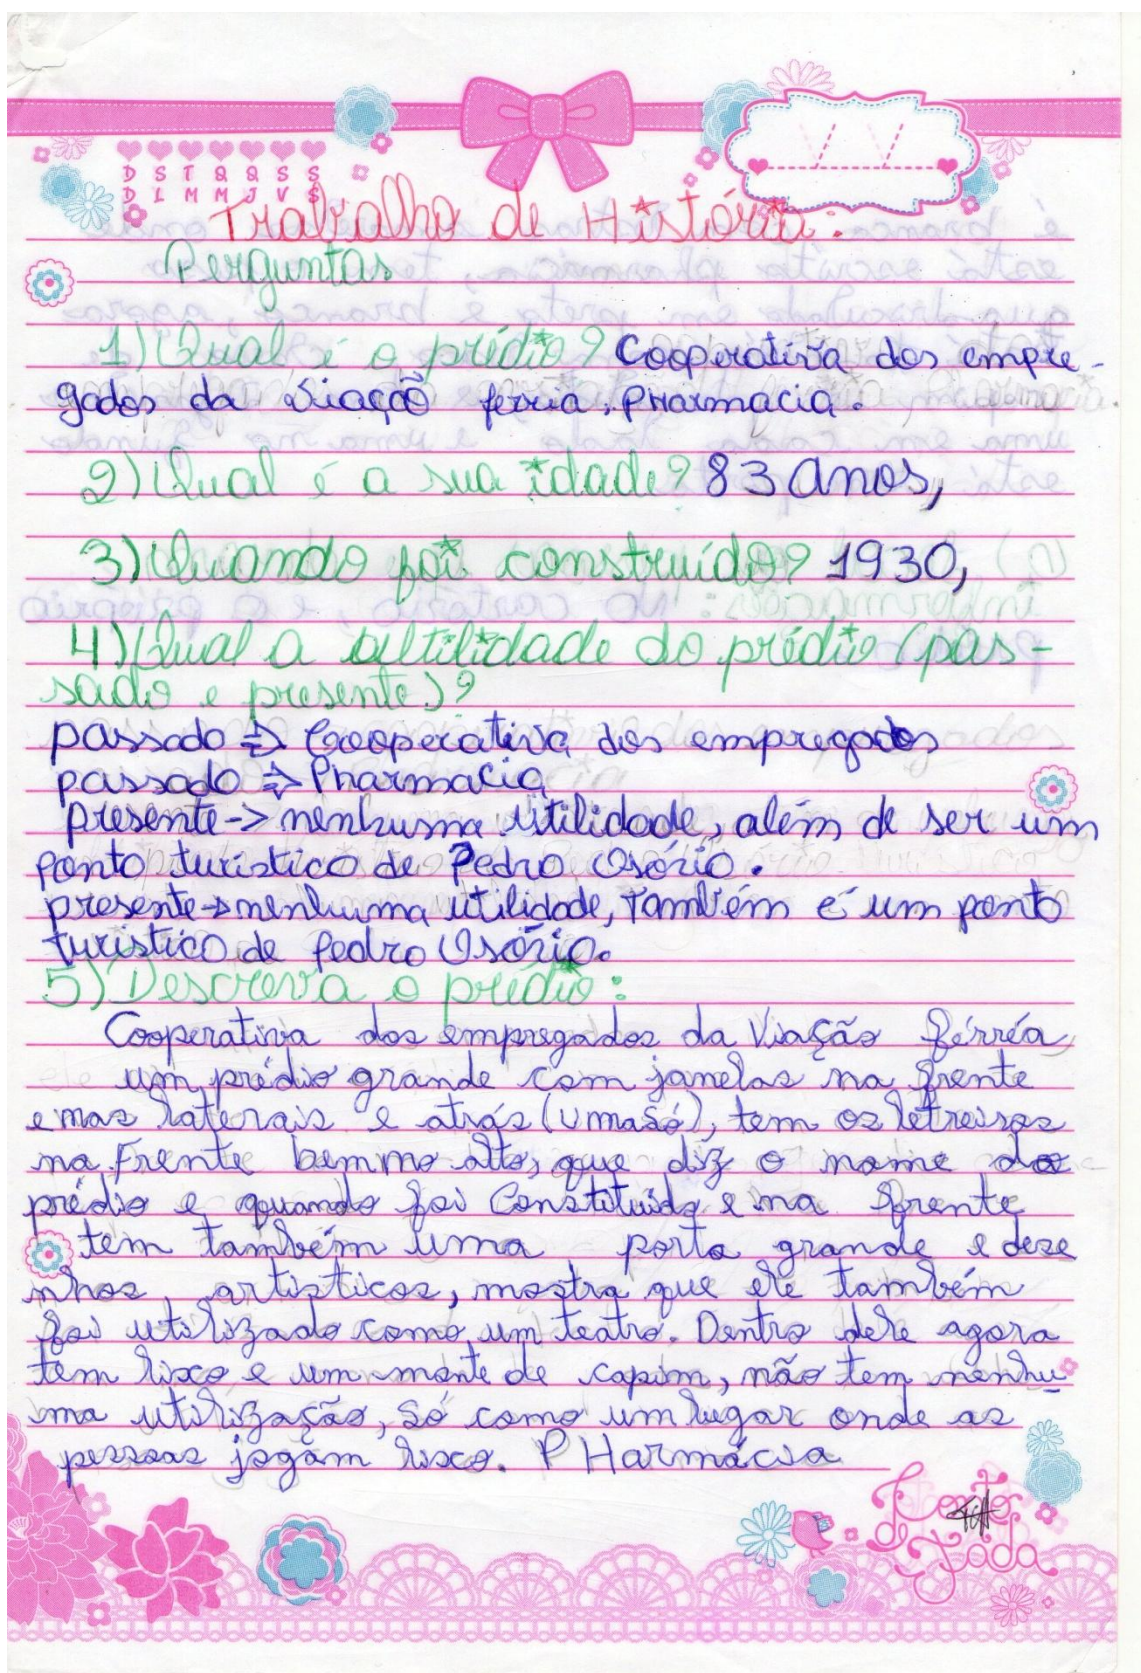 D S T Q Q S S
D L M M J V S
Trabalho de História:
Perguntas
1) Qual é o prédio? Cooperativa dos empre-
gados da Viação ferria, Pharmacia.
2) Qual é a sua idade? 83 anos,
3) Quando foi construído? 1930,
4) Qual a ultilidade do prédio (pas-
sado e presente)?
passado => Cooperativa dos empregados
passado => Pharmacia
presente -> nenhuma utilidade, além de ser um
ponto turístico de Pedro Osório.
presente -> nenhuma utilidade, Também é um ponto
turístico de Pedro Osório.
5) Descreva o prédio:
Cooperativa dos empregados da Viação férréa
um prédio grande com janelas na frente
e nas laterais e atrás (uma só), tem os letreiros
na frente bem no alto, que diz o nome do
prédio e quando foi Constituído e na frente
tem também uma porta grande e dese
nhos artisticos, mostra que ele também
foi utilizado como um teatro. Dentro dele agora
tem lixo e um monte de capim, não tem nenhu-
ma utilização, só como um lugar onde as
pessoas jogam lixo. PHarmácia
de Fada